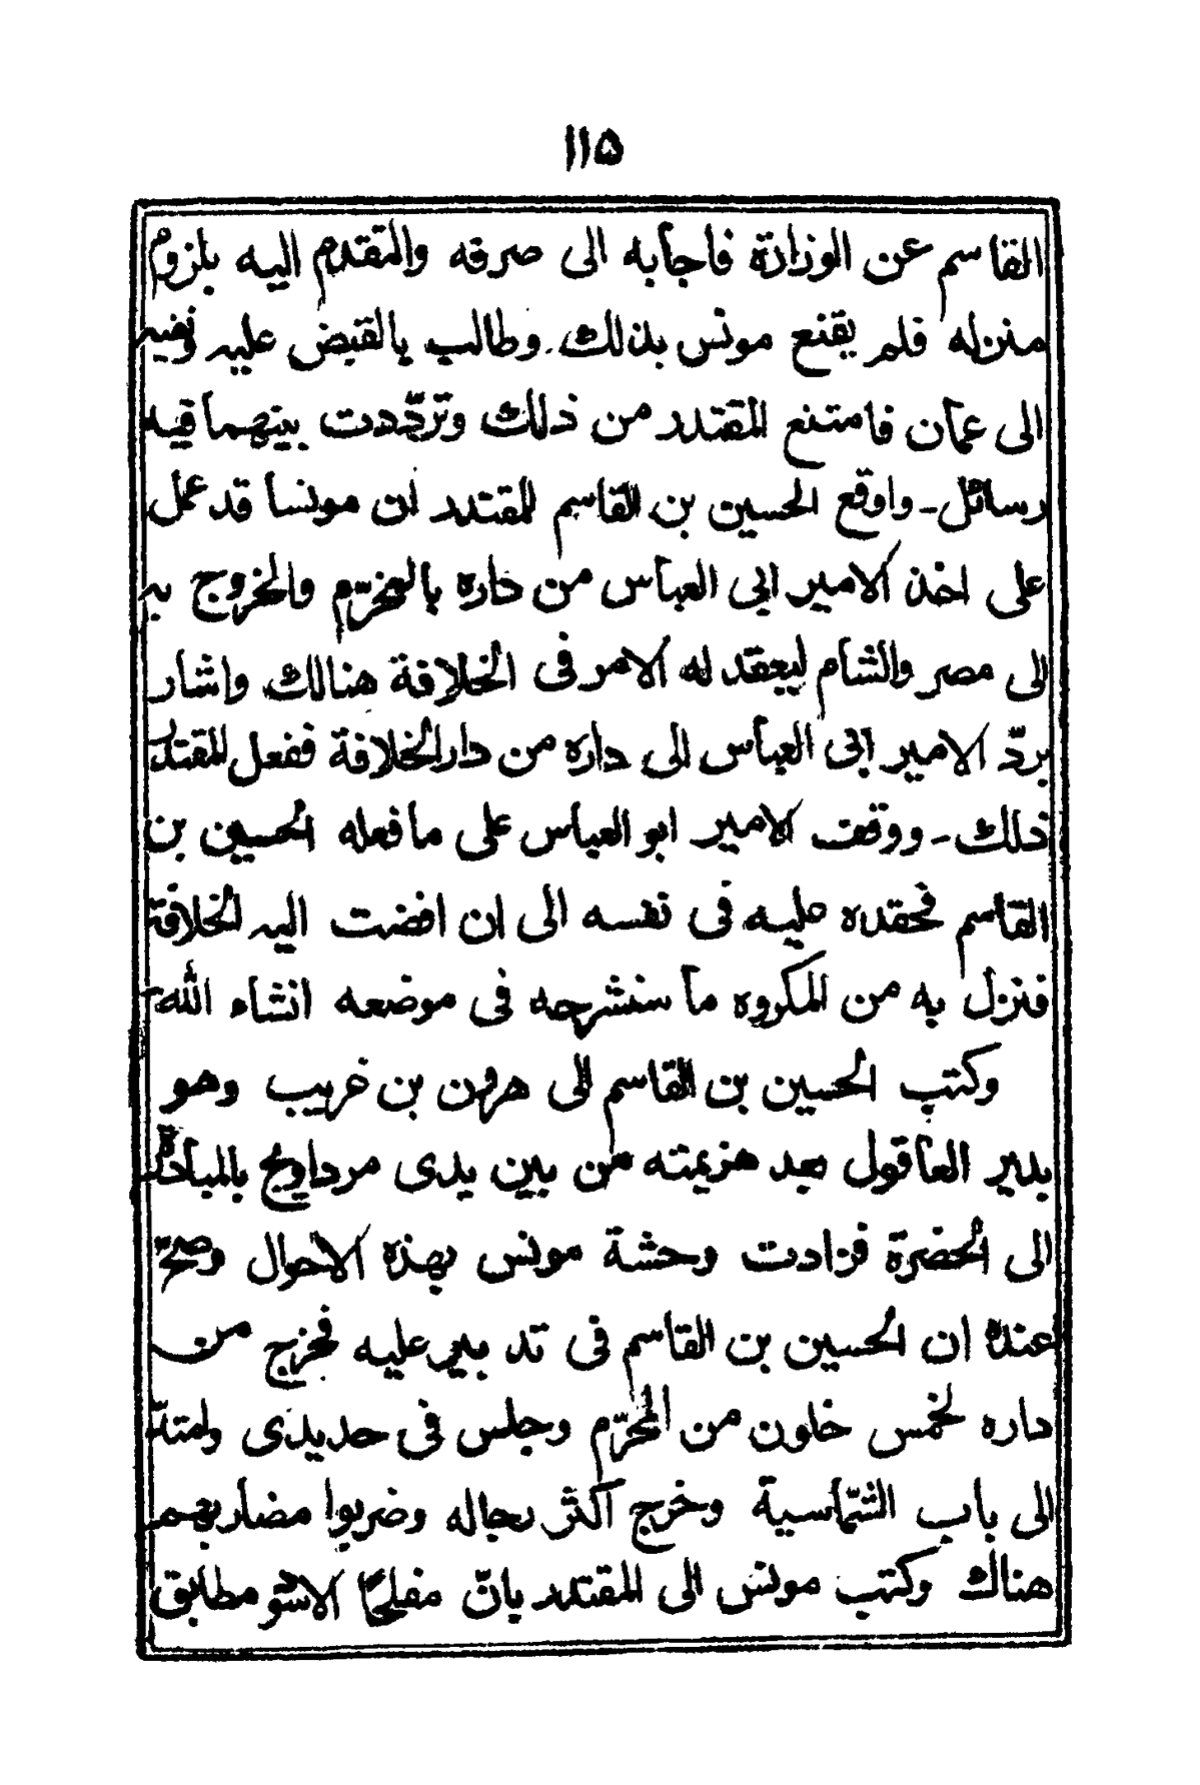 ۱۱۵
القاسم عن الوزارة فاجابه الى صرفه والتقدم اليه بلزوم
منزله فلم يقنع مونس بذلك. وطالب بالقبض عليه ونفيه
الى عمان فامتنع المقتدر من ذلك وتردّدت بينهما فيه
رسائل - واوقع الحسين بن القاسم للمقتدر ان مونسا قد عمل
على اخذ الامير ابى العباس من داره بالمخرّم والخروج به
الى مصر والشام ليعقد له الامر فى الخلافة هنالك واشار
بردّ الامير ابى العباس الى داره من دار الخلافة ففعل المقتدر
ذلك - ووقف الامير ابو العباس على ما فعله الحسين بن
القاسم فحقده عليه فى نفسه الى ان افضت اليه الخلافة
فنزل به من المكروه ما سنشرحه فى موضعه انشاء الله
وكتب الحسين بن القاسم الى هرون بن غريب وهو
بدير العاقول بعد هزيمته من بين يدى مرداويج بالمبادرة
الى الحضرة فزادت وحشة مونس بهذه الاحوال وصحّ
عنده ان الحسين بن القاسم فى تدبير عليه فخرج من
داره لخمس خلون من المحرّم وجلس فى حديدى وامتدّ
الى باب الشمّاسية وخرج اكثر رجاله وضربوا مضاربهم
هناك وكتب مونس الى المقتدر بانّ مفلحًا الاسود مطابق